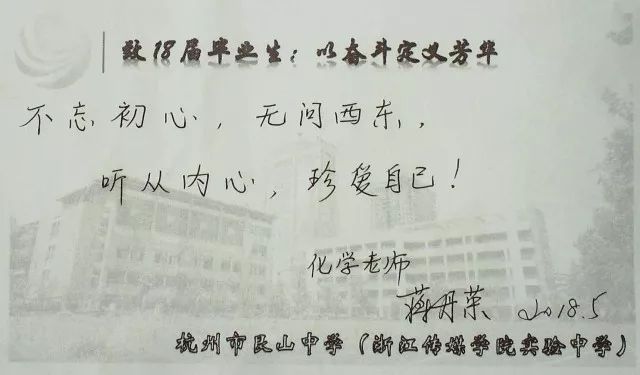 致18届毕业生：以奋斗定义芳华
不忘初心，无问西东，
听从内心，珍爱自己！
化学老师
蒋丹荣 2018.5
杭州市艮山中学（浙江传媒学院实验中学）